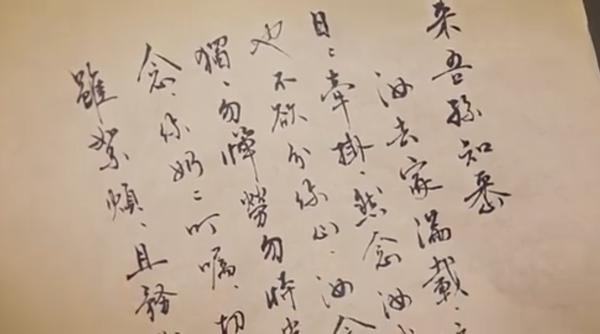 吾孫知悉
汝去家滿載、
日々牽掛、然念汝
也不欲分你心、汝念
獨、勿憚勞勿恃
念、你奶々叮囑、切
雖絮煩、且務